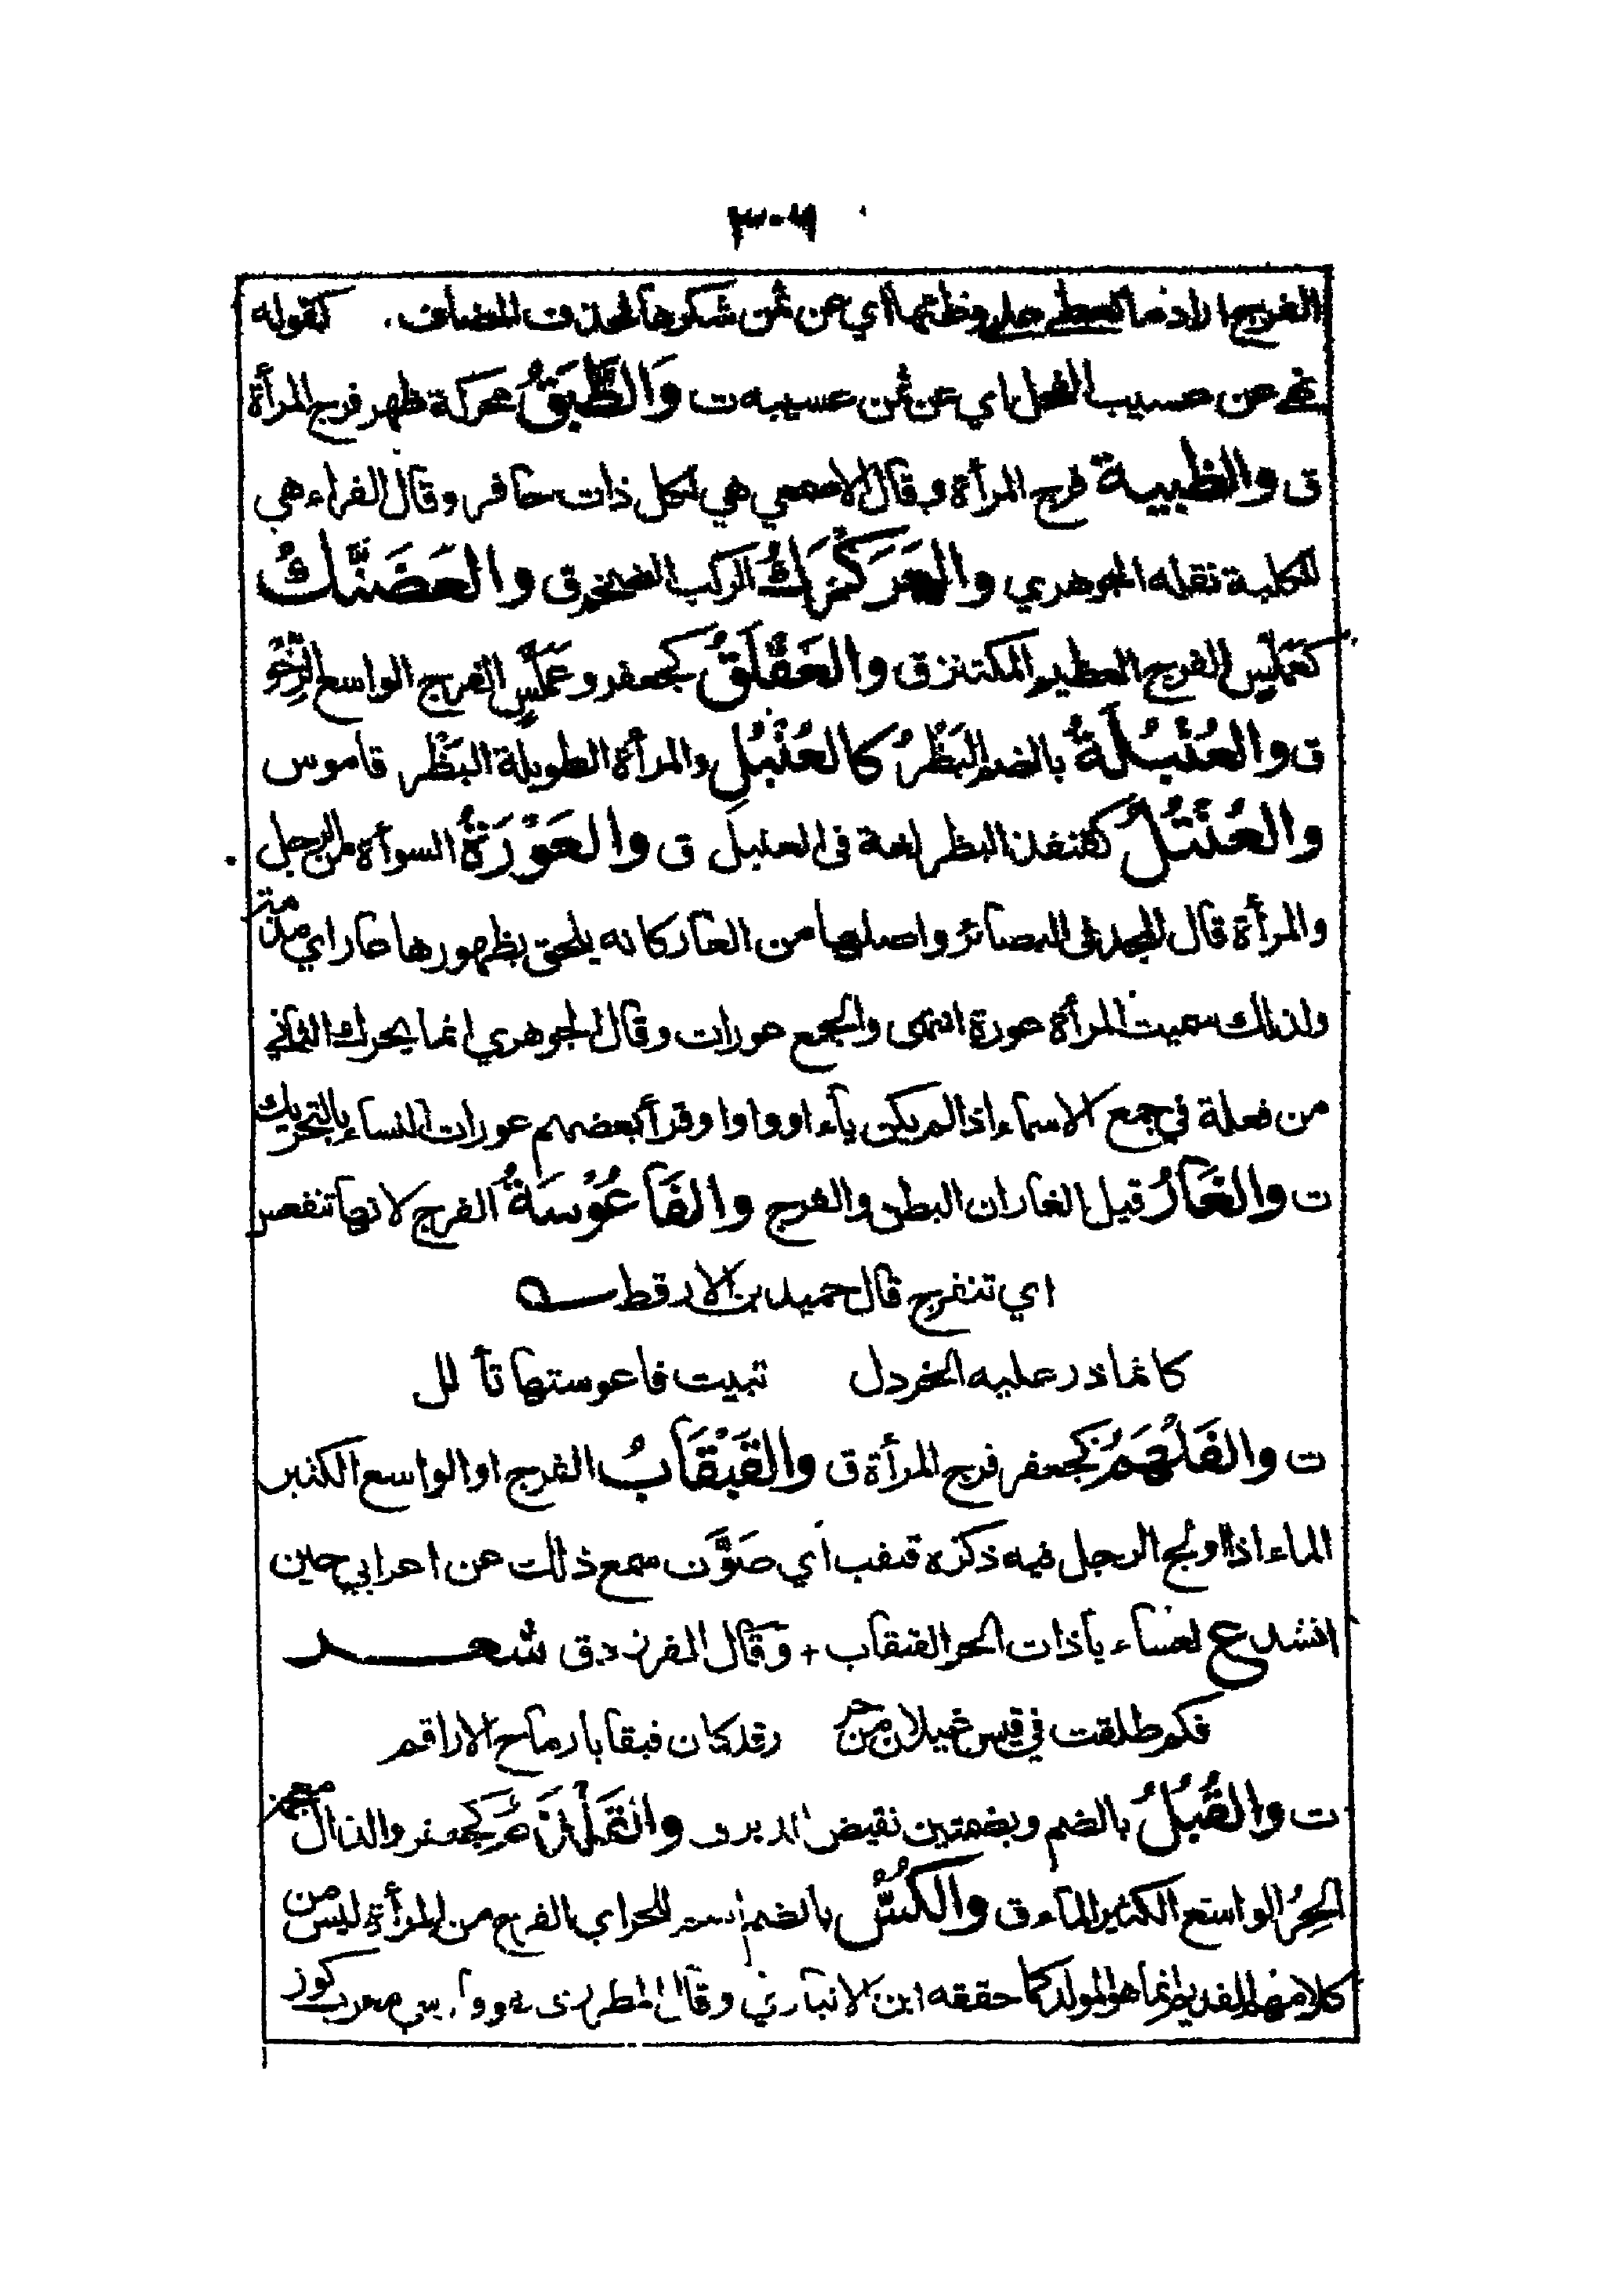 ٣٠٦
الفرج اراد ما تعطى على وطئها اي عن ثمن شكرها فحذف المضاف . كقوله
نهى عن عسيب الفحل اي عن ثمن عسيبه ت وَالطَّبَقُ محركة ظهر فرج المرأة
ق والظبية فرج المرأة وقال الاصمعي هي لكل ذات حافر وقال الفراء هي
للكلبة نقله الجوهري والعَرَكْرَكُ الركب الضخم ق والعَضَنَّكُ
كعَمَلَّس الفرج العظيم المكتنز ق والعَفَلَّقُ كجعفر وعَمَلَّس الفرج الواسع الرِّخْو
ق والعُنْبُلَةُ بالضم البَظْرُ كالعُنْبُلِ والمرأة الطويلة البَظْر قاموس
والعُنْتُلُ كقنفذ البظر لغة في العنبل ق والعَوْرَةُ السوأة من الرجل
والمرأة قال المجد في البصائر واصلها من العار كانه يلحق بظهورها عار اي مذمة
ولذلك سميت المرأة عورة انتهى والجمع عورات وقال الجوهري انما يحرك الثاني
من فعلة في جمع الاسماء اذا لم يكن ياء او واوا وقرأ بعضهم عورات النساء بالتحريك
ت والغَارُ قيل الغاران البطن والفرج والفَاعُوْسَةُ الفرج لانها تنفعس
اي تنفرج قال حميد بن الارقط
كانما ذر عليه الخردل تبيت فاعوستها تألل
ت والفَلْهَمُ كجعفر فرج المرأة ق والقَبْقَابُ الفرج او الواسع الكثير
الماء اذا اولج الرجل فيه ذكره قبقب اي صَوَّت سمع ذلك عن اعرابي حين
انشد ع لعساء يا ذات الحر القبقاب + وقال الفرزدق شعر
فكم طلقت في قيس غيلان من حر وقد كان قبقابا رماح الاراقم
ت والقُبُلُ بالضم وبضمتين نقيض الدبر والقَلَذَمُ كجعفر والذال معجمة
الحِرُ الواسع الكثير الماء ق والكُسُّ بالضم اسم للحر اي الفرج من المرأة ليس من
كلامهم القديم انما هو المولد كما حققه ابن الانباري وقال المطرزي هو فارسي معرب كوز